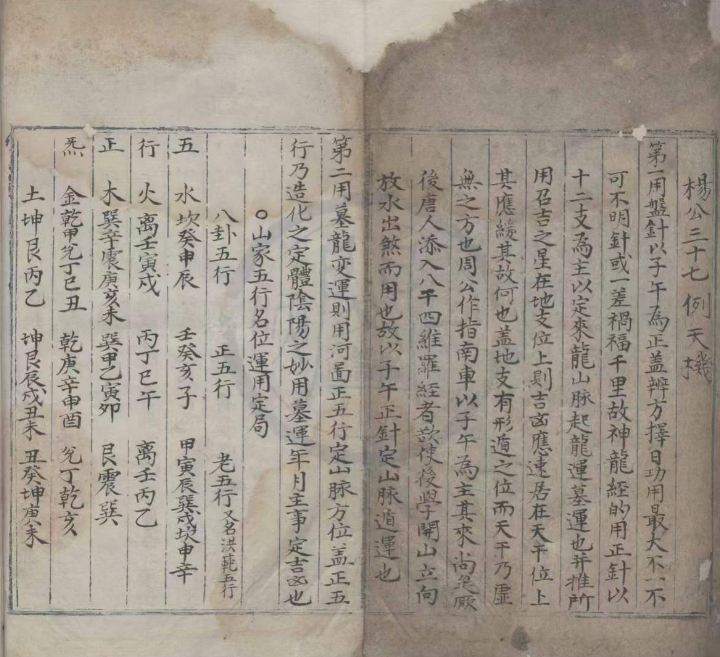 楊公三十七例天機
第一用盤針以子午為正盖辨方擇日功用最大不
可不明針或一差禍福千里故神龍經的用正針以
十二支為主以定來龍山脉起龍運墓運也并推所
用召吉之星在地支位上則吉凶應速居在天干位上
其應緩其故何也盖地支有形遁之位而天干乃虛
無之方也周公作指南車以子午為主其來尚矣厥
後唐人添入八干四維羅經者欲使後學開山立向
放水出煞而用也故以子午正針定山脉遁運也
第二用墓龍变運則用河啚正五行定山脉方位盖正五
行乃造化之定體陰陽之妙用墓運年月主事定吉凶也
○山家五行名位運用定局
八卦五行 正五行 老五行又名洪範五行
五 水坎癸申辰 壬癸亥子 甲寅辰巽戍坎申辛
行 火离壬寅戍 丙丁巳午 离壬丙乙
正 木巽辛震庚亥未 巽甲乙寅卯 艮震巽
炁 金乾甲兊丁巳丑 乾庚辛申酉 兊丁乾亥
土坤艮丙乙 坤艮辰戍丑未 丑癸坤庚未